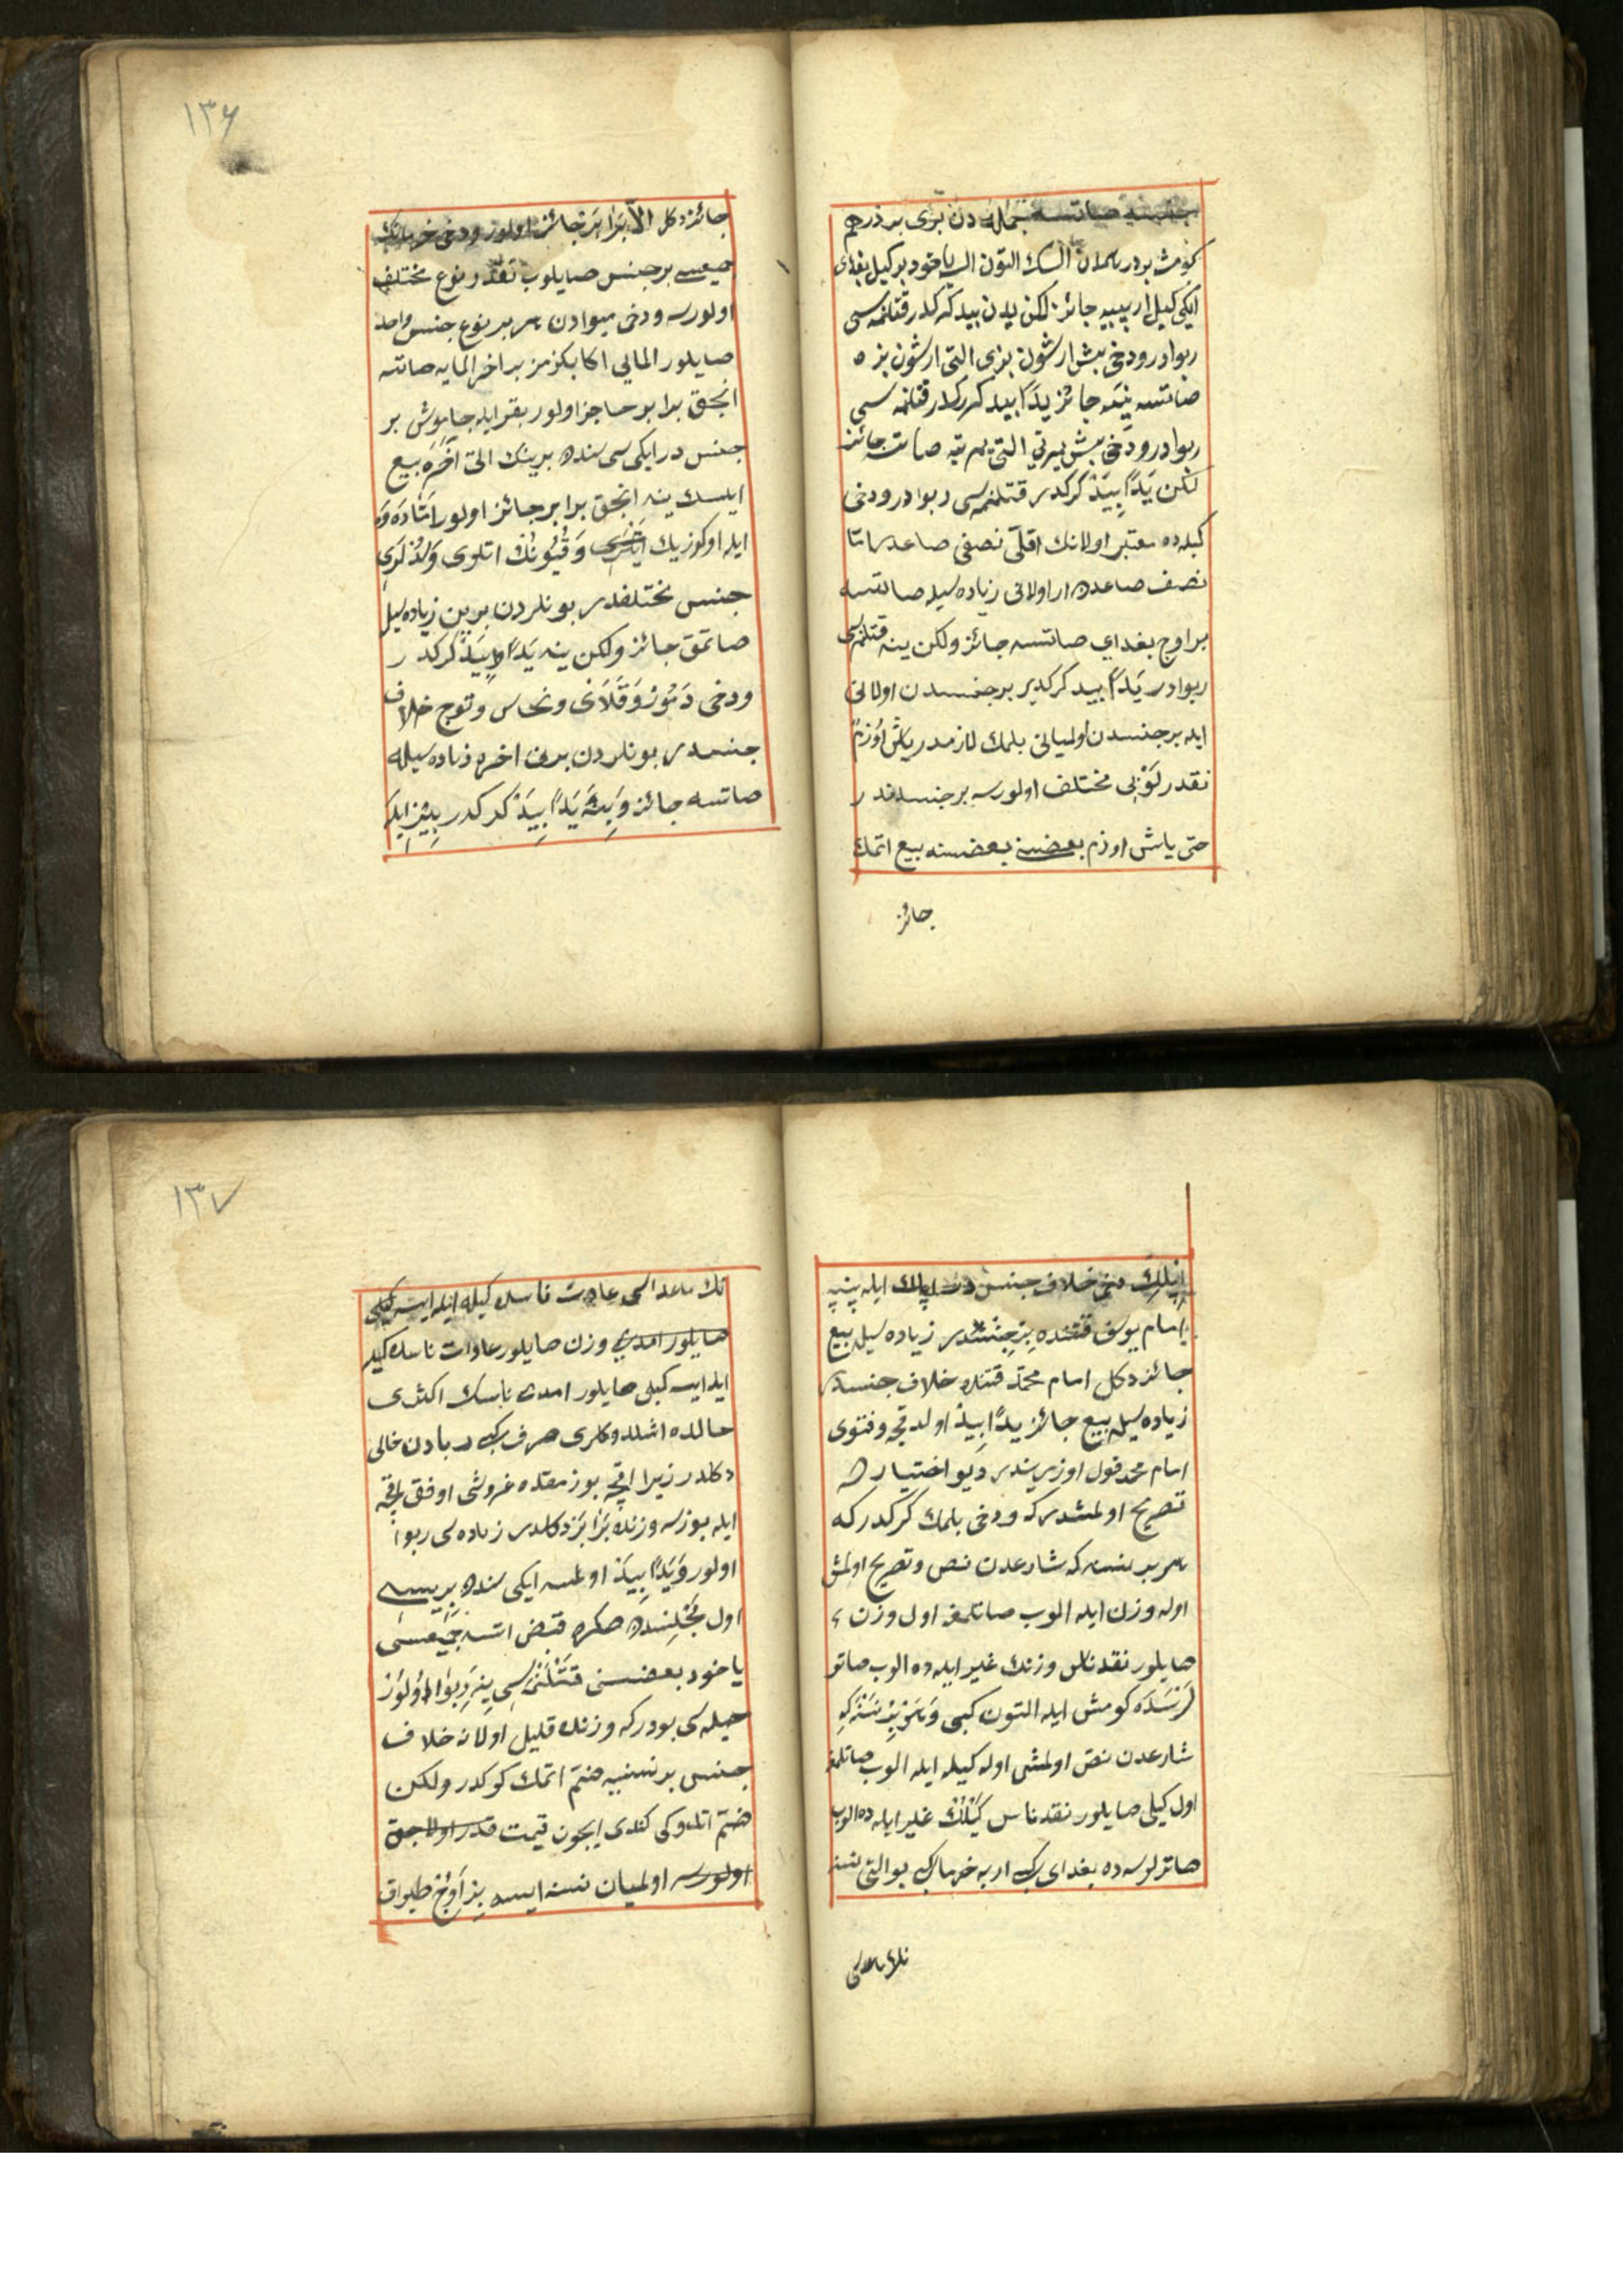 جنسنه صاتسه جمله دن بری بر درهم
کومش بر درهمدن اکسك التون الیه یاخود بر کیل بغدای
ایکی کیل ارپه یه جائز لکن یدن بید کرکدر قتلنمه سی
ربوادر ودخی بش ارشون بزی التی ارشون بزه
صاتسه ینه جائز یداً بید کرکدر قتلنمه سی
ربوادر ودخی بش یری التی یره صاتسه جائز
لکن یَدًا بِیَدْ کرکدر قتلنمه سی ربوادر ودخی
کیلده معتبر اولانك اقلّی نصفی صاعدر امّا
نصف صاعدن از اولانی زیاده سیله صاتسه
بر اوج بغدای صاتسه جائز ولکن ینه قتلنمه سی
ربوادر یَدًا بید کرکدر بر جنسدن اولانی
ایله بر جنسدن اولمیانی بلمك لازمدر یاش اوزم
نقدر لونی مختلف اولورسه بر جنسدندر
حتی یاش اوزم بعضنی بعضسنه بیع اتمك
جائز
۱۳۶
جائز دکل الاّ برابر جائز اولور ودخی خرمانك
جمیعسی بر جنس صایلوب نقدر نوع مختلف
اولورسه ودخی میوادن هر بر نوع جنس واحد
صایلور المایی اکا بکزمز بر اخر المایه صاتسه
انجق برابر جاجز اولور بقر ایله جاموش بر
جنس در ایکی سی سنده برینك اتی آخره بیع
ایلسك ینه انجق برابر جائز اولور امّا دَوَه
ایله اوکوزیك وقیونك اتلری ولذلری
جنس مختلفدر بونلردن برین زیاده سیله
صاتمق جائز ولکن ینه یَدًا بِیَدْ کرکدر
ودخی دَمُورْ وَقَلَایْ ونحاس وتوج خلاف
جنسدر بونلردن برینی اخره زیاده سیله
صاتسه جائز وَینَه یَدًا بِیَدْ کرکدر بِزْ ایله
اپلك دخی خلاف جنس در اپلك ایله پنبه
امام یوسف قتنده بِرْ جِنْسْدر زیاده سیله بیع
جائز دکل امام محمّد قتنده خلاف جنسدر
زیاده سیله بیع جائز یدًا بِیدْ اولدقجه وفتوی
امام محمد قول اوزریندر دیو اختیارده
تصریح اولمشدر که ودخی بلمك کرکدر که
هر بر نسنه که شارعدن نص وتصریح اولمش
اوله وزن ایله الوب صاتلمغه اول وزنی
صایلور نقدر ناس وزنك غیر ایله ده الوب صاتر
لَرْسَدَه کومش ایله التون کبی وَهَرْ بِرْ نَسْنَه کِه
شارعدن نص اولمش اوله کیله ایله الوب صاتلمغه
اول کیلی صایلور نقدر ناس کَیْلِكْ غیر ایله ده الوب
صاترلرسه ده بغدای کبی اربه خرما کبی بو التی نسنه
نك ماعداسی
۱۳۷
نك ماعداسی عادت ناسده کیله ایله ایسه کیلی
صایلور امدی وزن صایلور عادات ناسده کیله
ایله ایسه کیلی صایلور امدی ناسك اکثری
حالده اشلدوکلری صرف کبی ربادن خالی
دکلدر زیرا اقچه بوزمقده غروشی اوفق اقچه
ایله بوزسه وزنده برابر دکلدر زیاده سی ربوا
اولور وَیَدًا بِیَدْ اولمسه ایکی سنده بریسی
اول مجلسنده صکره قبض اتسه جمیعسی
یاخود بعضسنی قتلنمه سی ینه ربوا اولور
حیله سی بودر که وزنده قلیل اولانه خلاف
جنس بر نسنیه ضمّ اتمك کرکدر ولکن
ضمّ اتدوکی کندی ایچون قیمت قدر اولاجق
اولورسه اولمیان نسنه ایسه بر اوج طپراق